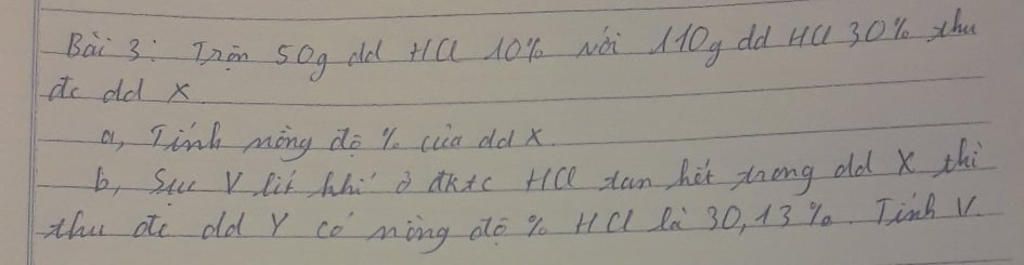 Bài 3: Trộn 50g dd HCl 10% với 110g dd HCl 30% thu
đc dd X
a, Tính nồng độ % của dd X.
b, Sục V lít khí ở đktc HCl tan hết trong dd X thì
thu đc dd Y có nồng độ % HCl là 30,13%. Tính V.